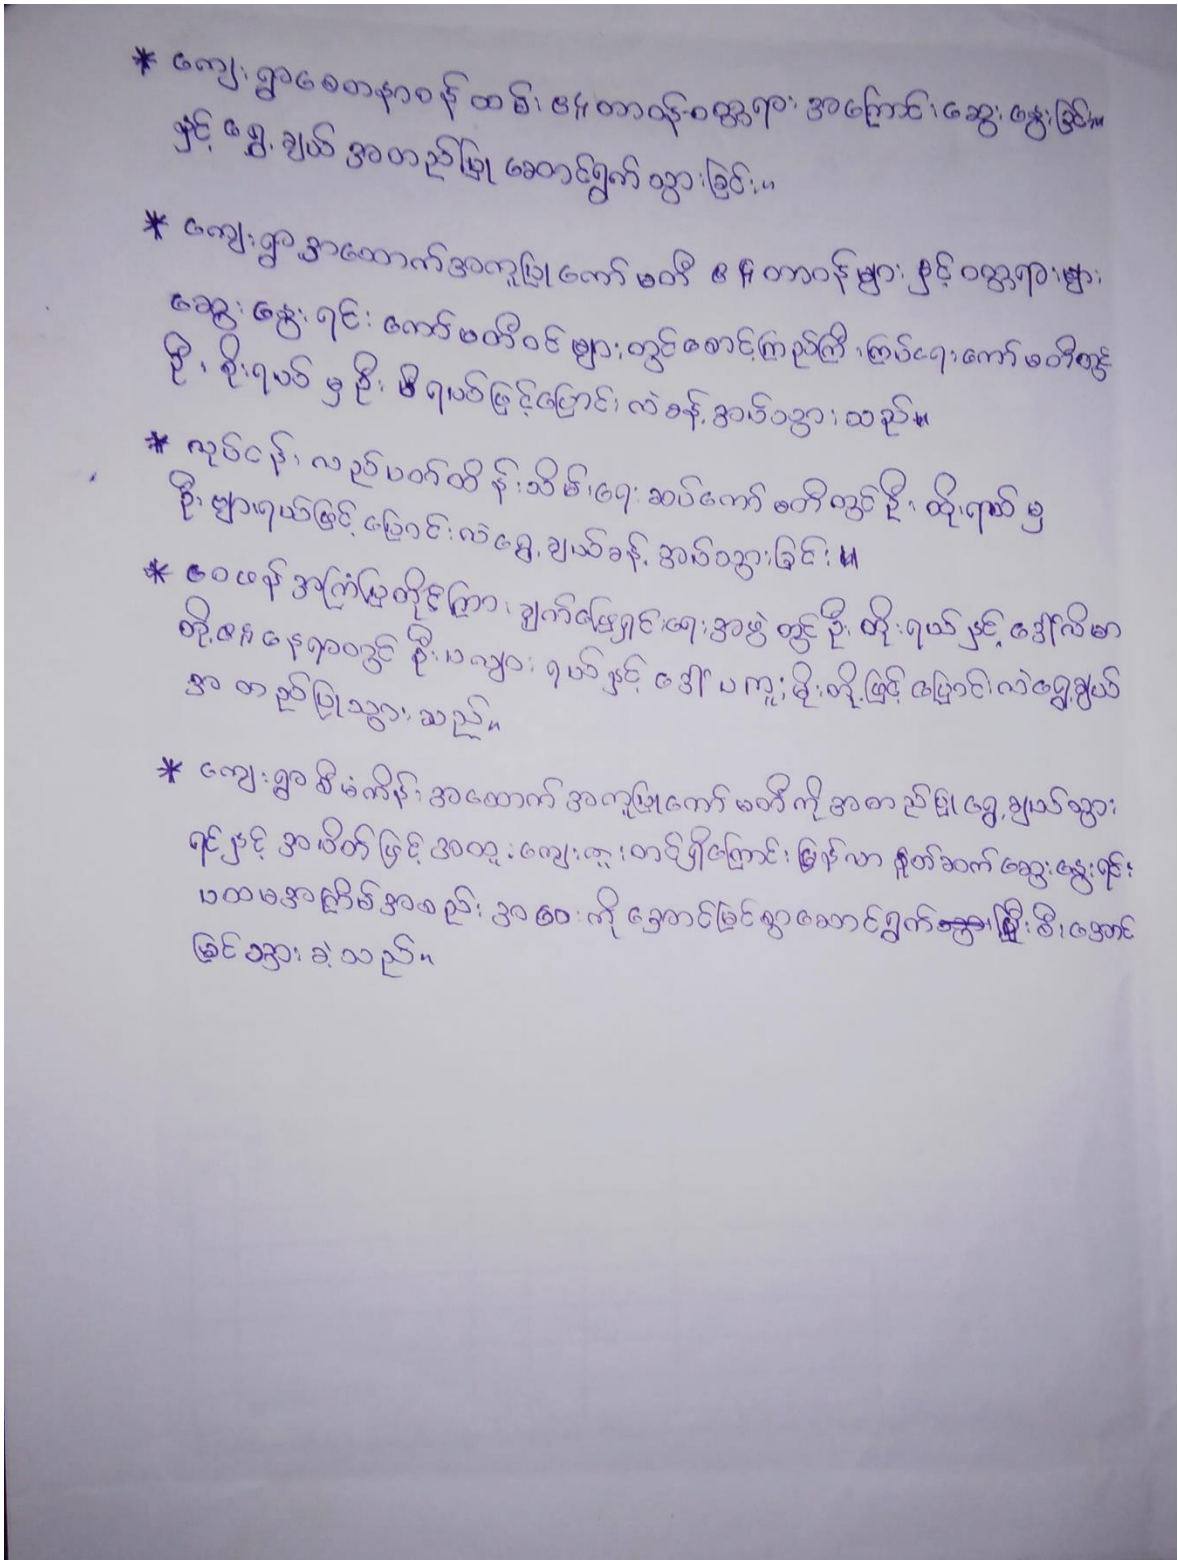 * ကျေးရွာစေတနာ့ဝန်ထမ်း ၏ တာဝန်ဝတ္တရား အကြောင်း ဆွေးနွေးခြင်း။
နှင့် ရွေ့ချယ် အတည်ပြု ဆောင်ရွက် သွားခြင်း။
* ကျေးရွာ အထောက်အကူပြု ကော်မတီ ၏ တာဝန်များ နှင့် ဝတ္တရားများ
ဆွေးနွေးရင်း ကော်မတီဝင် များတွင် စောင့်ကြည့်ကြီးကြပ်ရေး ကော်မတီတွင်
ဦးစိုးရယ် မှ ဦး ရယ်ဖြင့် ပြောင်းလဲ ခန့်အပ်သွားသည်။
* လုပ်ငန်း လည်ပတ်ထိန်းသိမ်းရေး ဆပ်ကော်မတီတွင် ဦးထိုးရယ် မှ
ဦးဗျားရယ်ဖြင့် ပြောင်းလဲရွေ့ချယ်ခန့်အပ်သွားခြင်း။
* ဝေဖန် အကြံပြုတိုင်ကြားချက်ဖြေရှင်းရေးအဖွဲ့ တွင် ဦးထိုးရယ် နှင့် ဒေါ်လီမာ
တို့၏ နေရာတွင် ဦးပလျားရယ်နှင့် ဒေါ် ပကူးမိုးတို့ဖြင့် ပြောင်းလဲရွေ့ချယ်
အတည်ပြုသွားသည်။
* ကျေးရွာစီမံကိန်း အထောက်အကူပြုကော်မတီကို အတည်ပြု ရွေ့ချယ်သွား
ရင်နှင့် အဖိတ်ဖြင့် အထူးကျေးဇူးတင်ရှိကြောင်း မြန်လာ နှုတ်ဆက် ဆွေးနွေးရင်း
ပထမအကြိမ်အစည်းအဝေးကို အောင်မြင်စွာဆောင်ရွက်ပြီးစီးအောင်
မြင်သွားခဲ့သည်။